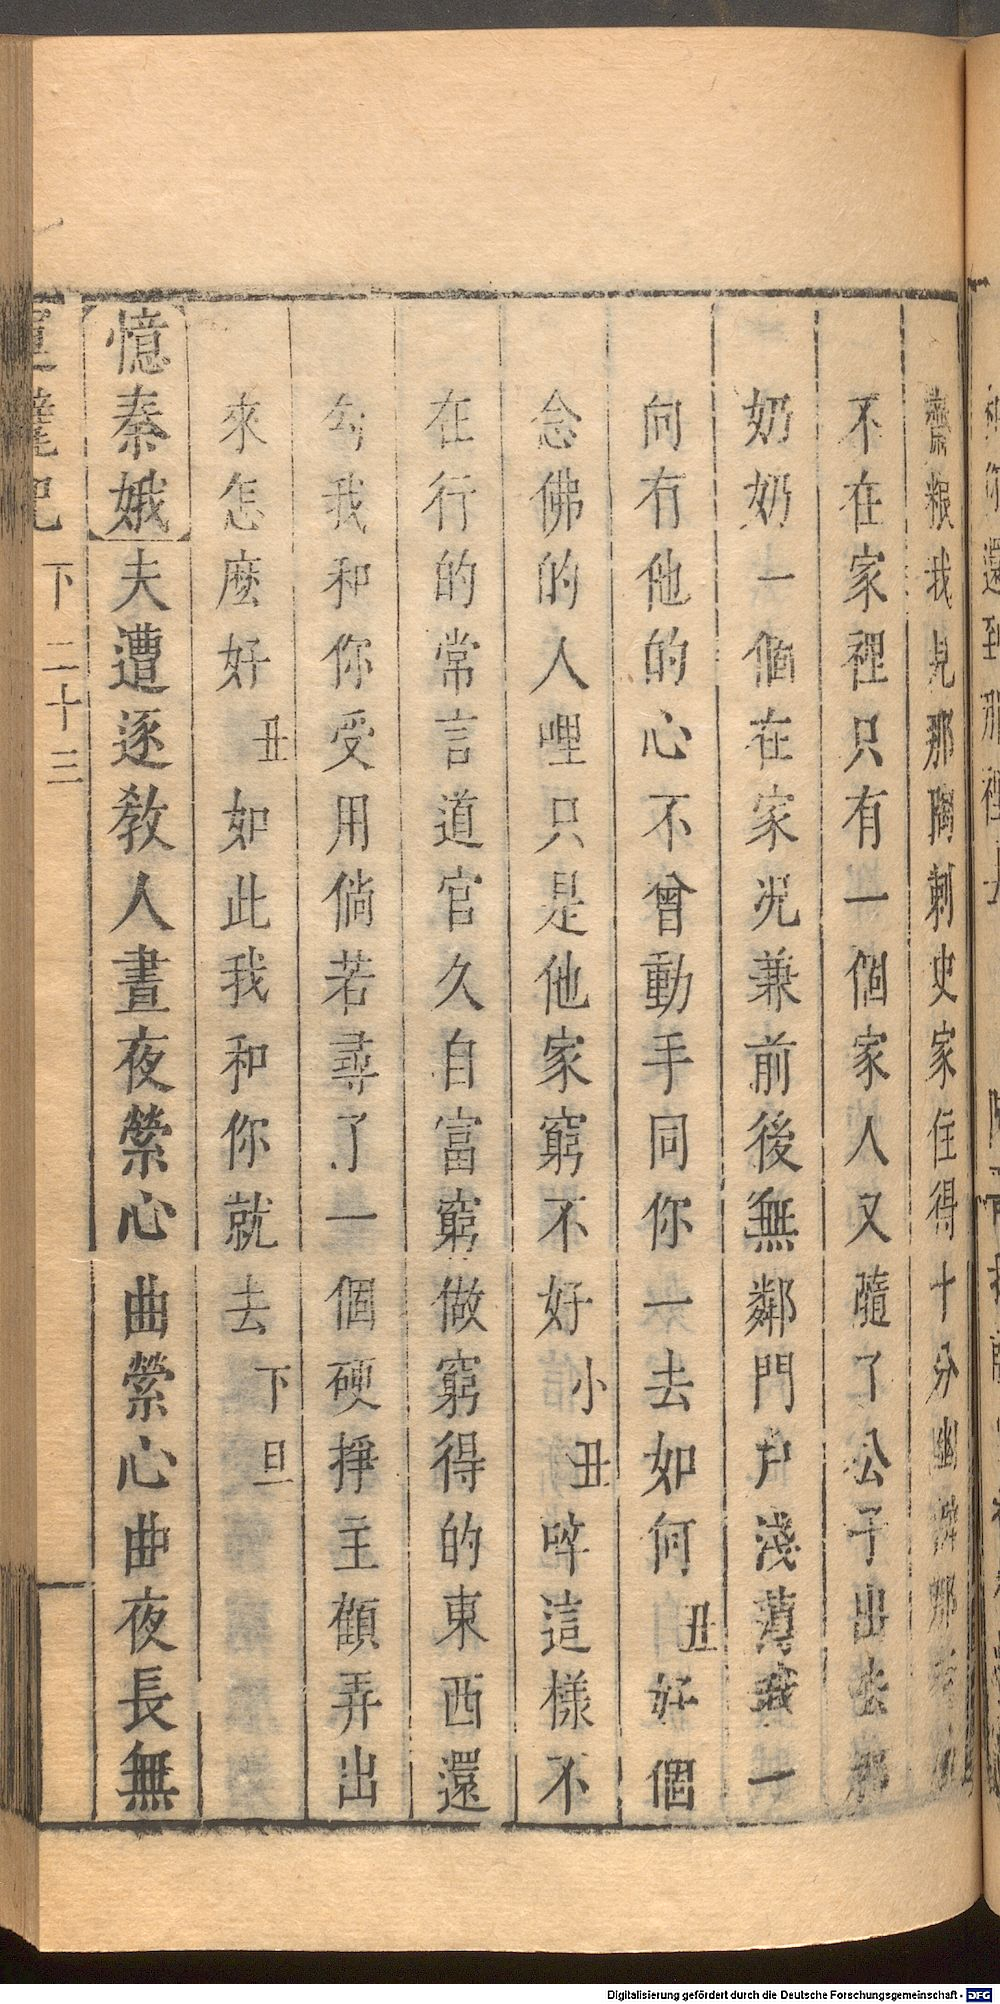 齋粮我見那陶刺史家住得十分幽僻那
不在家裡只有一個家人又隨了公子出去那
奶奶一個在家況兼前後無鄰門戶淺薄我一
向有他的心不曾動手同你一去如何丑好個
念佛的人哩只是他家窮不好小丑啐這樣不
在行的常言道官久自富窮做窮得的東西還
勾我和你受用倘若尋了一個硬掙主顧弄出
來怎麽好丑如此我和你就去下旦
憶秦娥夫遭逐教人晝夜縈心曲縈心曲夜長無
下 二十三
Digitalisierung gefördert durch die Deutsche Forschungsgemeinschaft - DFG